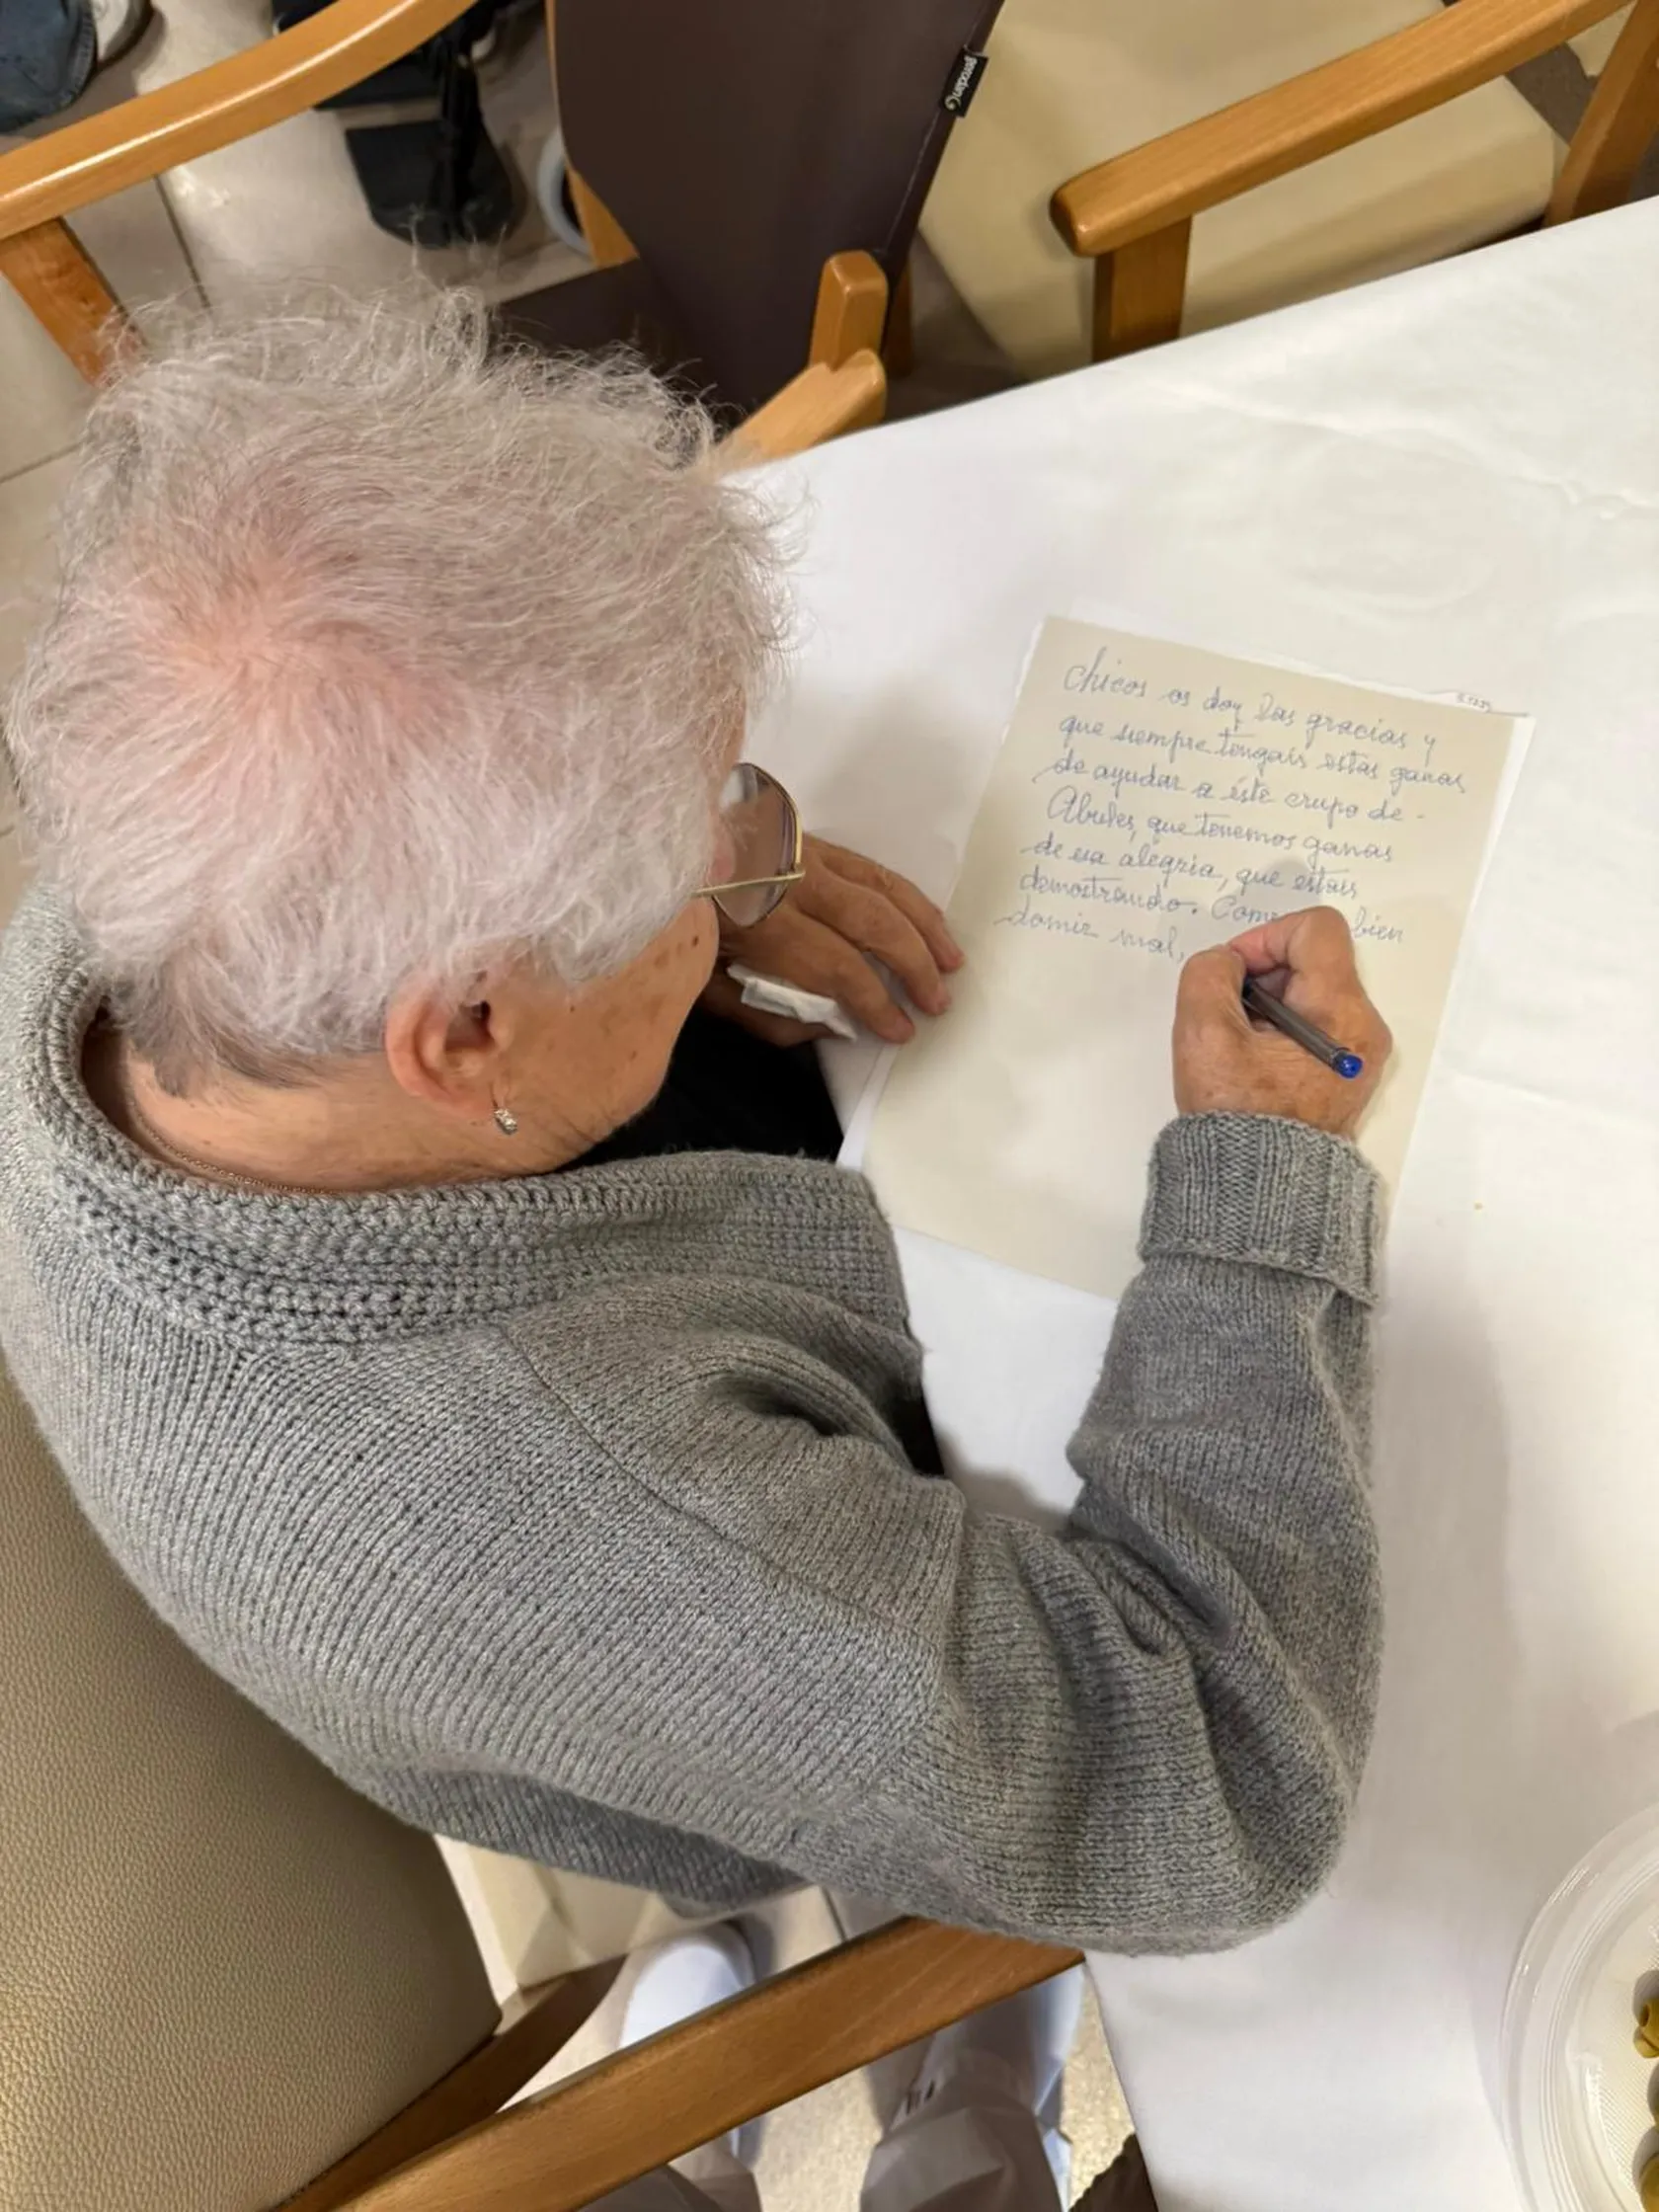 gerodan
Chicos os doy las gracias y
que siempre tengais estas ganas
de ayudar a éste crupo de -
Abueles, que tenemos ganas
de esa alegria, que estais
demostrando. Come bien
domir mal,